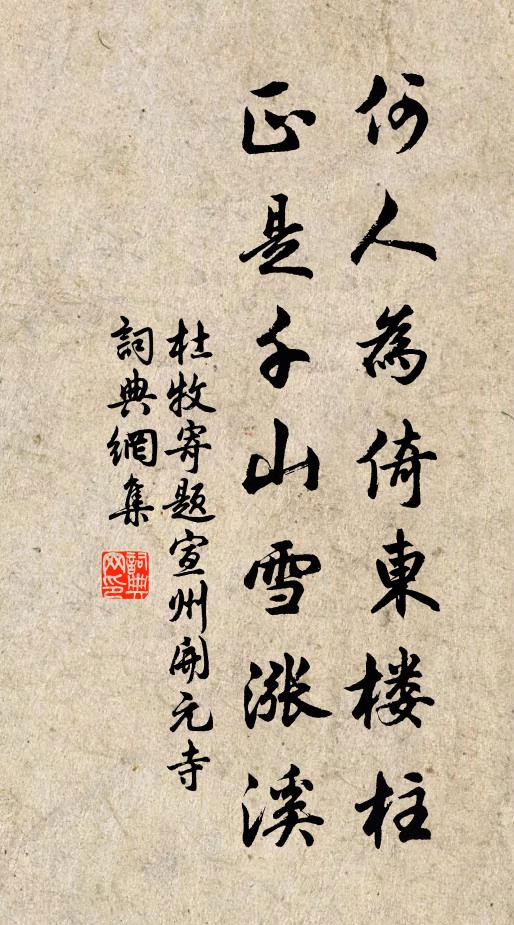 何人為倚東楼柱
正是千山雪漲溪
杜牧寄题宣州開元寺
詞典網集
詞典网印